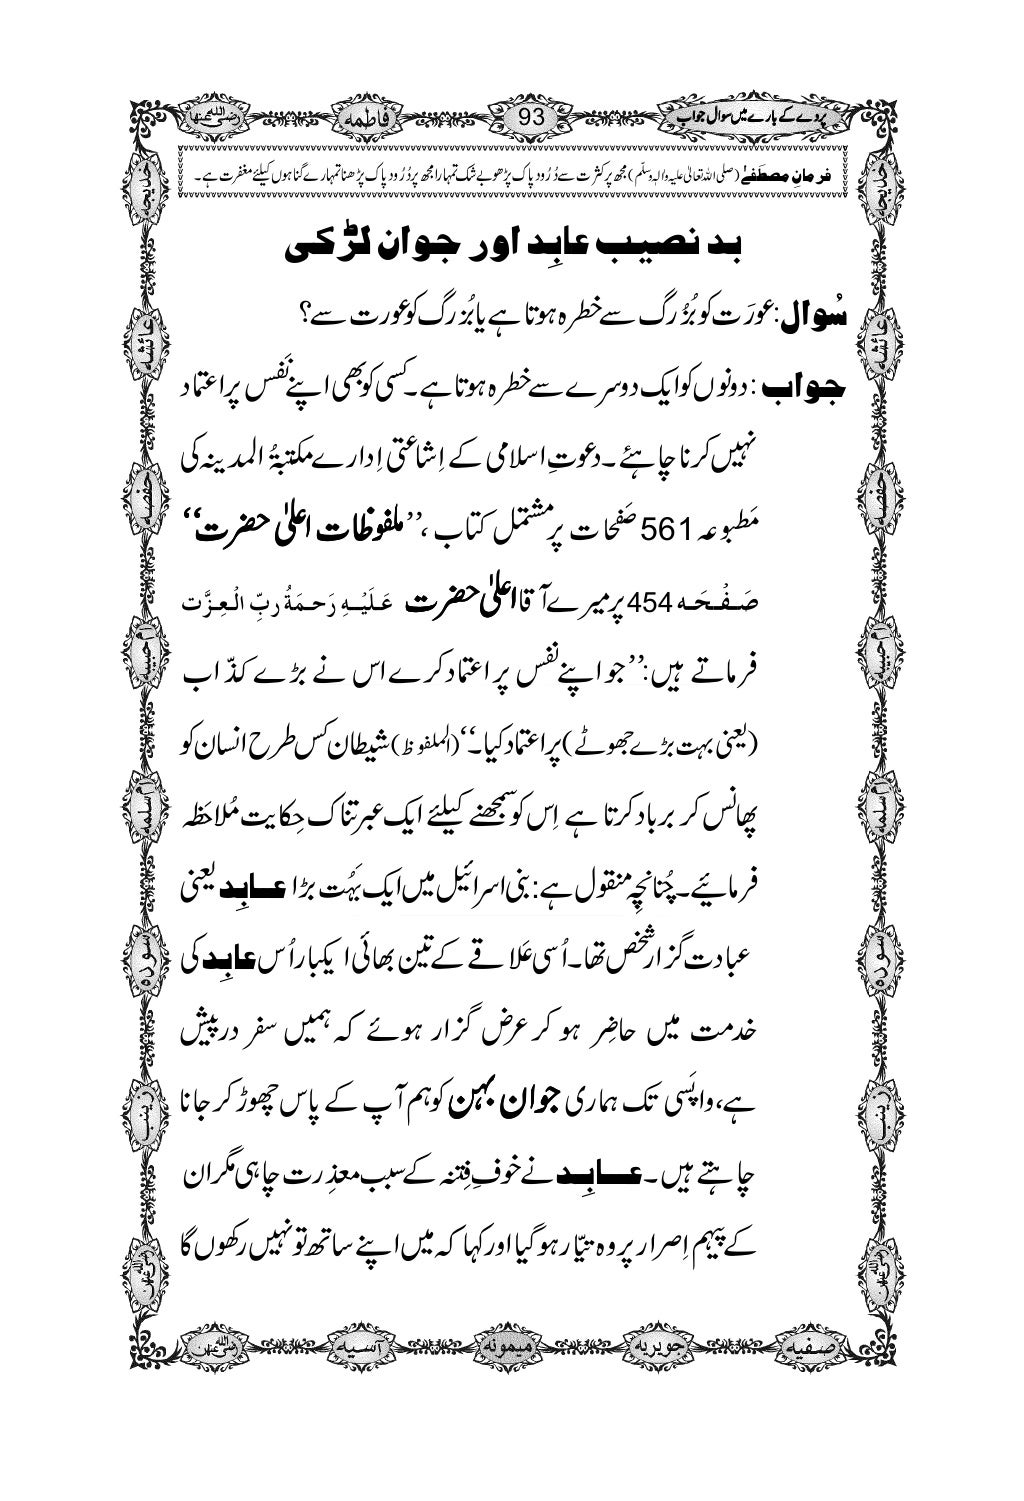 پردے کے بارے میں سوال جواب
93
فاطمه
رضی اللہ عنہا
فرمانِ مصطَفےٰ (صلی اللہ تعالیٰ علیہ والہ وسلّم) مجھ پر کثرت سے دُرُود پاک پڑھو بے شک تمہارا مجھ پر دُرُود پاک پڑھنا تمہارے گناہوں کیلئے مغفرت ہے۔
بد نصیب عابِد اور جوان لڑکی
سُوال: عورَت کو بُزُرگ سے خطرہ ہوتا ہے یا بُزرگ کو عورت سے؟
جواب: دونوں کو ایک دوسرے سے خطرہ ہوتا ہے۔ کسی کو بھی اپنے نَفْس پر اعتماد
نہیں کرنا چاہئے۔ دعوتِ اسلامی کے اِشاعتی اِدارے مکتبۃُ المدینہ کی
مَطبوعہ 561 صَفحات پر مشتمل کتاب، ’’ملفوظات اعلیٰ حضرت‘‘
صَفْحَه 454 پر میرے آقا اعلیٰ حضرت عَلَيْهِ رَحمَةُ ربِّ الْعِزَّت
فرماتے ہیں: ’’جو اپنے نفس پر اعتماد کرے اس نے بڑے کذّاب
(یعنی بہت بڑے جھوٹے) پر اعتماد کیا۔‘‘ (الملفوظ) شیطان کس طرح انسان کو
پھانس کر برباد کرتا ہے اِس کو سمجھنے کیلئے ایک عبرتناک حِکایت مُلاحَظہ
فرمائیے۔ چُنانچِہ منقول ہے: بنی اسرائیل میں ایک بَہُت بڑا عابِد یعنی
عبادت گزار شخص تھا۔ اُسی عَلاقے کے تین بھائی ایکبار اُس عابِد کی
خدمت میں حاضِر ہو کر عرض گزار ہوئے کہ ہمیں سفر درپیش
ہے، واپَسی تک ہماری جوان بہن کو ہم آپ کے پاس چھوڑ کر جانا
چاہتے ہیں۔ عابِد نے خوفِ فِتنہ کے سبب معذِرت چاہی مگر ان
کے پیہم اِصرار پر وہ تیّار ہو گیا اور کہا کہ میں اپنے ساتھ تو نہیں رکھوں گا
خدیجه
عائشه
حفصه
ام حبیبه
ام سلمه
سوده
زینب
رضی اللہ عنہن
خدیجه
عائشه
حفصه
ام حبیبه
ام سلمه
سوده
زینب
رضی اللہ عنہن
صفیه
جویریه
میمونه
آسیه
رضی اللہ عنہن